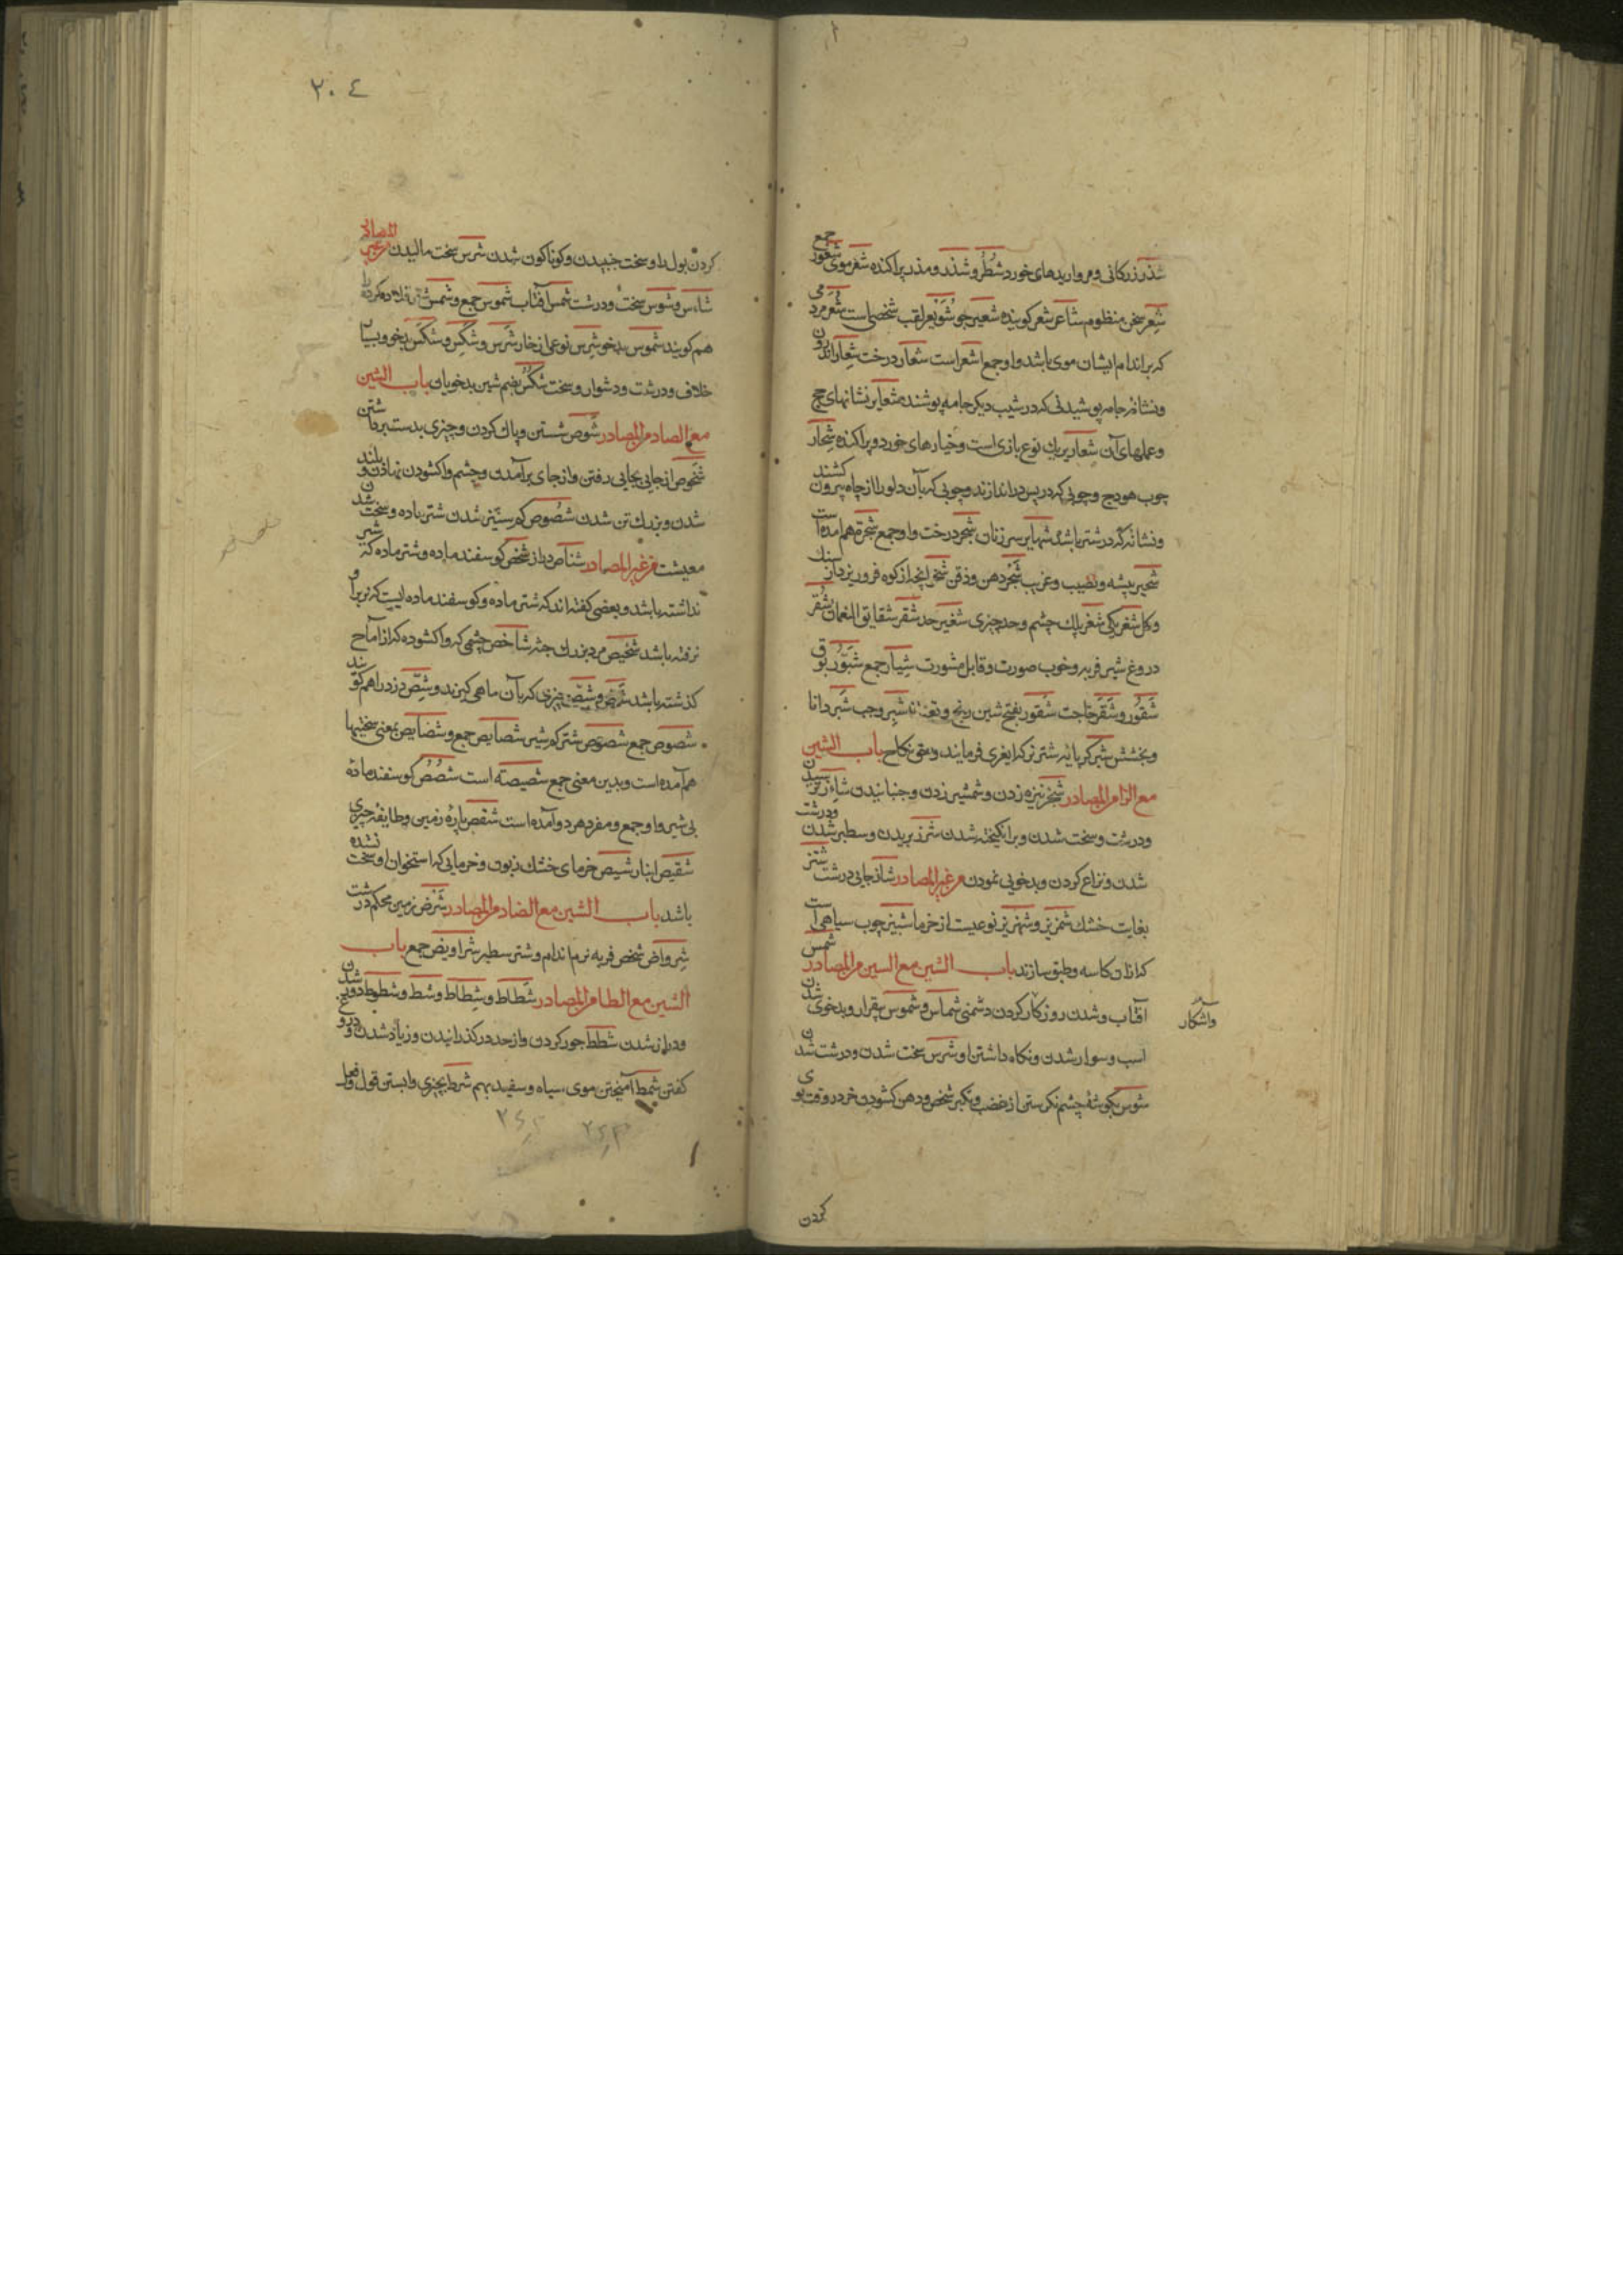 شذر زرکانی و مرواریدهای خورد شطر و شذر و مذر پراکنده شعر موی شعور جمع
شعر سخن منظوم شاعر شعر کوینده شعیر جو شویعر لقب شخصی است شعر مرد می
که بر اندام ایشان موی باشد و او جمع اشعر است شعار درخت شعار اندرون
و نشانه جامه پوشیدنی که در شیب دیکر جامه پوشند مشعایر نشانهای حج
و عملهای آن شعاریر یک نوع بازی است و خیارهای خورد و پراکنده شجار
چوب هودج و چوبی که در پس در اندازند و چوبی که بآن دلو را از چاه بیرون کشند
و نشانه که در شتر باشد شهایر سر زنان شجر درخت و او جمع شجرة هم امده است
شجیر پیشه و نصیب و غریب شجر دهن و ذقن شخر آنچه از کوه فرو ریزد از سنک
و کل شغر یکی شغر پلک چشم و حد چیزی شغیر حد شقر شقایق النعمان شقر
دروغ شیر فربه و خوب صورت و قابل مشورت شیار جمع شبور بوق
شقور و شقر حاجت شقور بفتح شین رنج و تعب شبر وجب شبر دانا
و بخشش شبر کرایه شتر نر که از بهری فرمایند و حق نکاح باب الشین
مع الزا من المصادر شخز نیزه زدن و شمشیر زدن و جنبانیدن شاءز ترسیدن
و درشت و سخت شدن و برانکیخته شدن شرز بریدن و سطبر شدن و درشت
شدن و نزاع کردن و بدخویی نمودن من غیر المصادر شاز جایی درشت شئز
بغایت خشک شمریز و شهریز نوعیست از خرما شیز چوب سیاهی است
که از ان کاسه و طبق سازند باب الشین مع السین من المصادر شمس
آفتاب و شدن روز کار کردن دشمنی شماس و شموس بیقرار و بدخوی شدن
و آشکار
اسب و سوار شدن و نکاه داشتن او شرس سخت شدن و درشت شدن
شوس بکوشه چشم نکرستن از غضب و تکبر شخس دهن کشودن خر در وقت بوی
کردن
٢٠٤
کردن بول را و سخت جنبیدن و کوناکون شدن شرس سخت مالیدن من غیر المصادر
شاس و شوس سخت و درشت شمس آفتاب شموس جمع و شمس قلاده کردن را
هم کویند شموس بدخو شرس نوعی از خار شرس و شکس و شکس بدخو و بسیار
خلاف و درشت و دشوار و سخت شکس بضم شین بدخویان باب الشین
مع الصاد من المصادر شوص شستن و پاک کردن و چیزی بدست برداشتن
شخوص از جایی بجایی رفتن و از جای برآمدن و چشم واکشودن نهادن و بلند
شدن و بزرک تن شدن شصوص کم شیر شدن شتر ماده و سخت شدن
معیشت من غیر المصادر شناص دراز شخص کوسفند ماده و شتر ماده که شیر
نداشته باشد و بعضی کفته اند که شتر ماده و کوسفند ماده ایست که نر بر او
نرفته باشد شخیص مرد بزرک جثه شاخص چشمی که واکشوده که از آماج
کذشته باشد شص و شص چیزی که بآن ماهی کیرند و شص دزد را هم کویند
شصوص جمع شصوص شتر کم شیر شصایص جمع و شصایص بمعنی سختیها
هم آمده است و بدین معنی جمع شصیصه است شصص کوسفند ماده
بی شیر و او جمع و مفرد هر دو آمده است شقص پاره زمین و طایفه چیزی
شقیص انباز شیص خرمای خشک زبون و خرمایی که استخوان او سخت نشده
باشد باب الشین مع الضاد من المصادر شرض زمین محکم درشت
شرواض شخص فربه نرم اندام و شتر سطبر شراویض جمع باب
الشین مع الطا من المصادر شطاط و شطاط و شط و شطوط دور شدن
و دراز شدن شطط جور کردن و از حد در کذرانیدن و زیاد شدن و دروغ
کفتن شمط آمیختن موی سیاه و سفید بهم شرط بچیزی وابستن قول و فعل